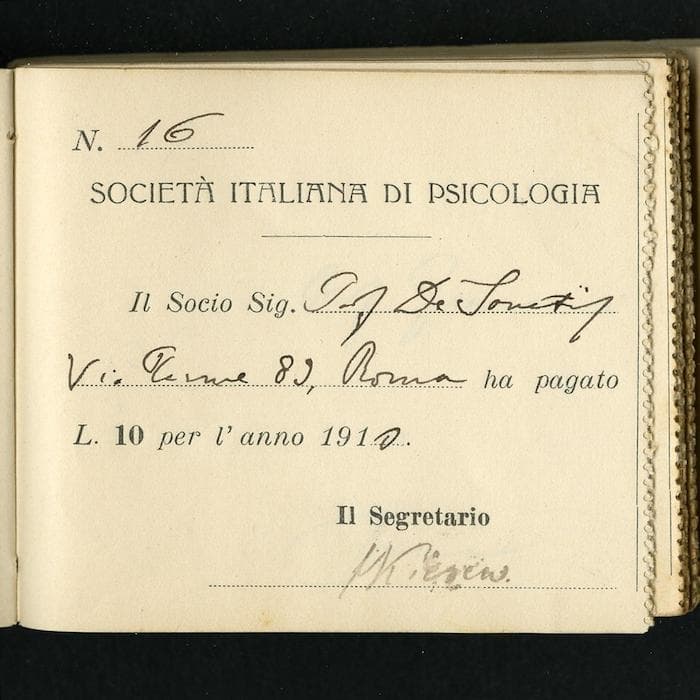 N. 16
SOCIETÀ ITALIANA DI PSICOLOGIA
Il Socio Sig. Prof De Sanctis
Via Terme 83, Roma ha pagato
L. 10 per l'anno 1910.
Il Segretario
FKiesow.